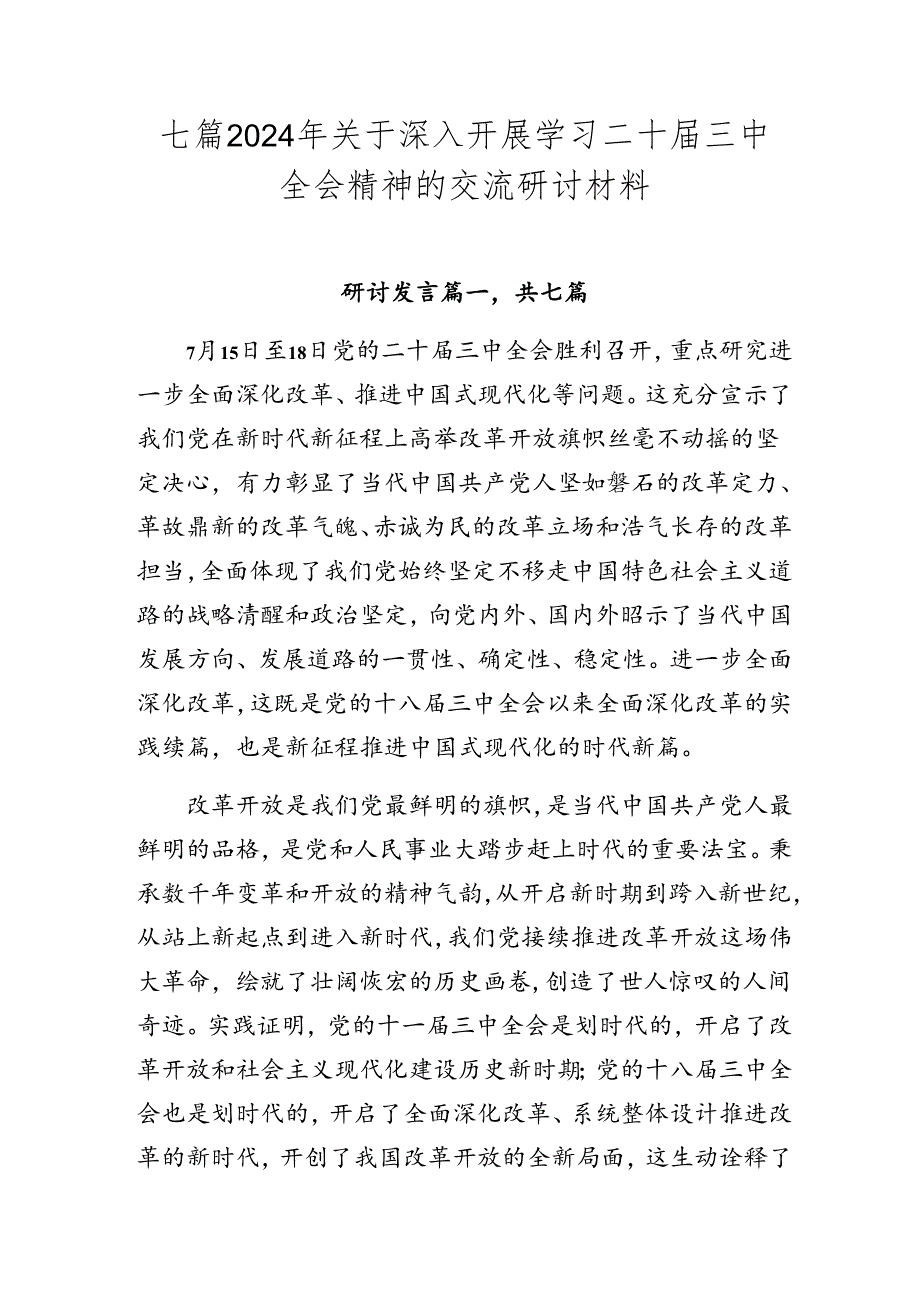 七篇2024年关于深入开展学习二十届三中
全会精神的交流研讨材料
研讨发言篇一，共七篇
7月15日至18日党的二十届三中全会胜利召开，重点研究进
一步全面深化改革、推进中国式现代化等问题。这充分宣示了
我们党在新时代新征程上高举改革开放旗帜丝毫不动摇的坚
定决心，有力彰显了当代中国共产党人坚如磐石的改革定力、
革故鼎新的改革气魄、赤诚为民的改革立场和浩气长存的改革
担当，全面体现了我们党始终坚定不移走中国特色社会主义道
路的战略清醒和政治坚定，向党内外、国内外昭示了当代中国
发展方向、发展道路的一贯性、确定性、稳定性。进一步全面
深化改革，这既是党的十八届三中全会以来全面深化改革的实
践续篇，也是新征程推进中国式现代化的时代新篇。
改革开放是我们党最鲜明的旗帜，是当代中国共产党人最
鲜明的品格，是党和人民事业大踏步赶上时代的重要法宝。秉
承数千年变革和开放的精神气韵，从开启新时期到跨入新世纪，
从站上新起点到进入新时代，我们党接续推进改革开放这场伟
大革命，绘就了壮阔恢宏的历史画卷，创造了世人惊叹的人间
奇迹。实践证明，党的十一届三中全会是划时代的，开启了改
革开放和社会主义现代化建设历史新时期；党的十八届三中全
会也是划时代的，开启了全面深化改革、系统整体设计推进改
革的新时代，开创了我国改革开放的全新局面，这生动诠释了